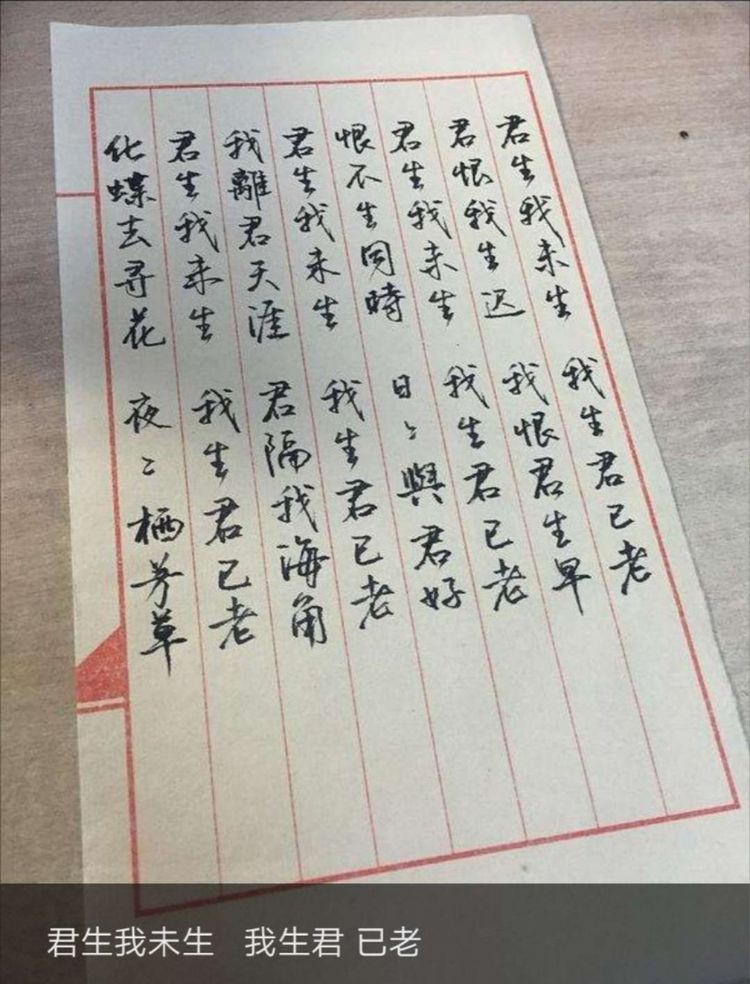 君生我未生 我生君已老
君恨我生迟 我恨君生早
君生我未生 我生君已老
恨不生同時 日〻與君好
君生我未生 我生君已老
我離君天涯 君隔我海角
君生我未生 我生君已老
化蝶去寻花 夜〻栖芳草
君生我未生 我生君 已老